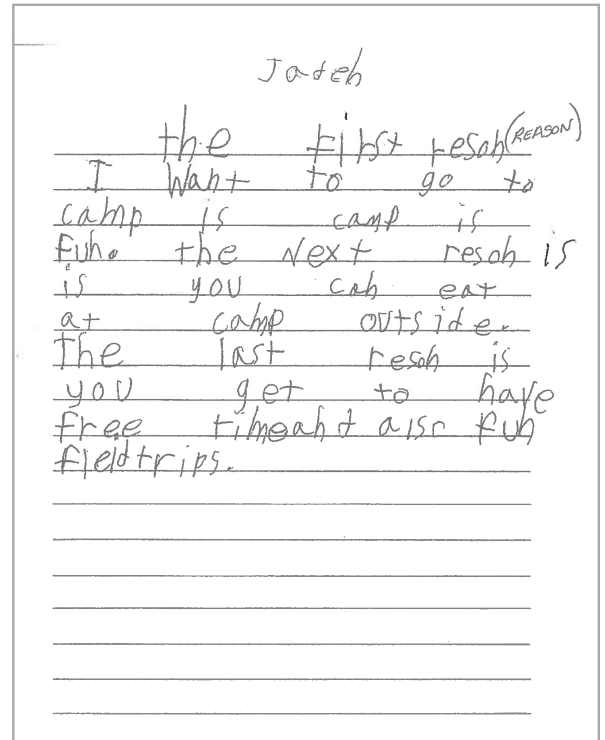 Jadeh
the first reson (REASON)
I want to go to
camp is camp is
fun. the Next reson is
is you can eat
at camp outside.
The last reson is
you get to have
free timeand also fun
fieldtrips.